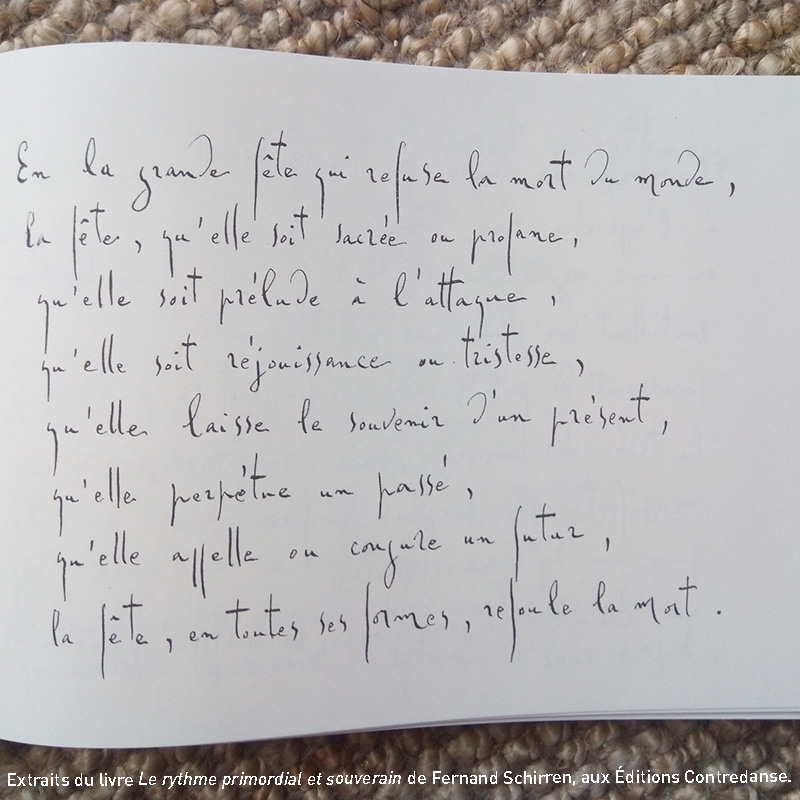 En la grande fête qui refuse la mort du monde,
la fête, qu'elle soit sacrée ou profane,
qu'elle soit prélude à l'attaque,
qu'elle soit réjouissance ou tristesse,
qu'elle laisse le souvenir d'un présent,
qu'elle perpétue un passé,
qu'elle appelle ou conjure un futur,
la fête, en toutes ses formes, refoule la mort.
Extraits du livre Le rythme primordial et souverain de Fernand Schirren, aux Éditions Contredanse.